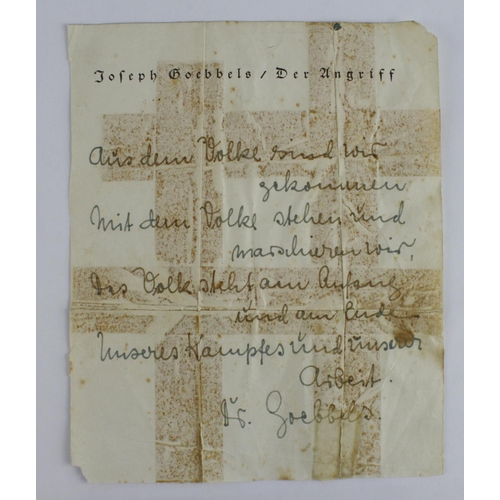 Joseph Goebbels / Der Angriff
Aus dem Volke sind wir
gekommen
Mit dem Volke stehen und
marschieren wir,
Das Volk steht am Anfang
und am Ende
Unseres Kampfes und unserer
Arbeit.
Dr. Goebbels.